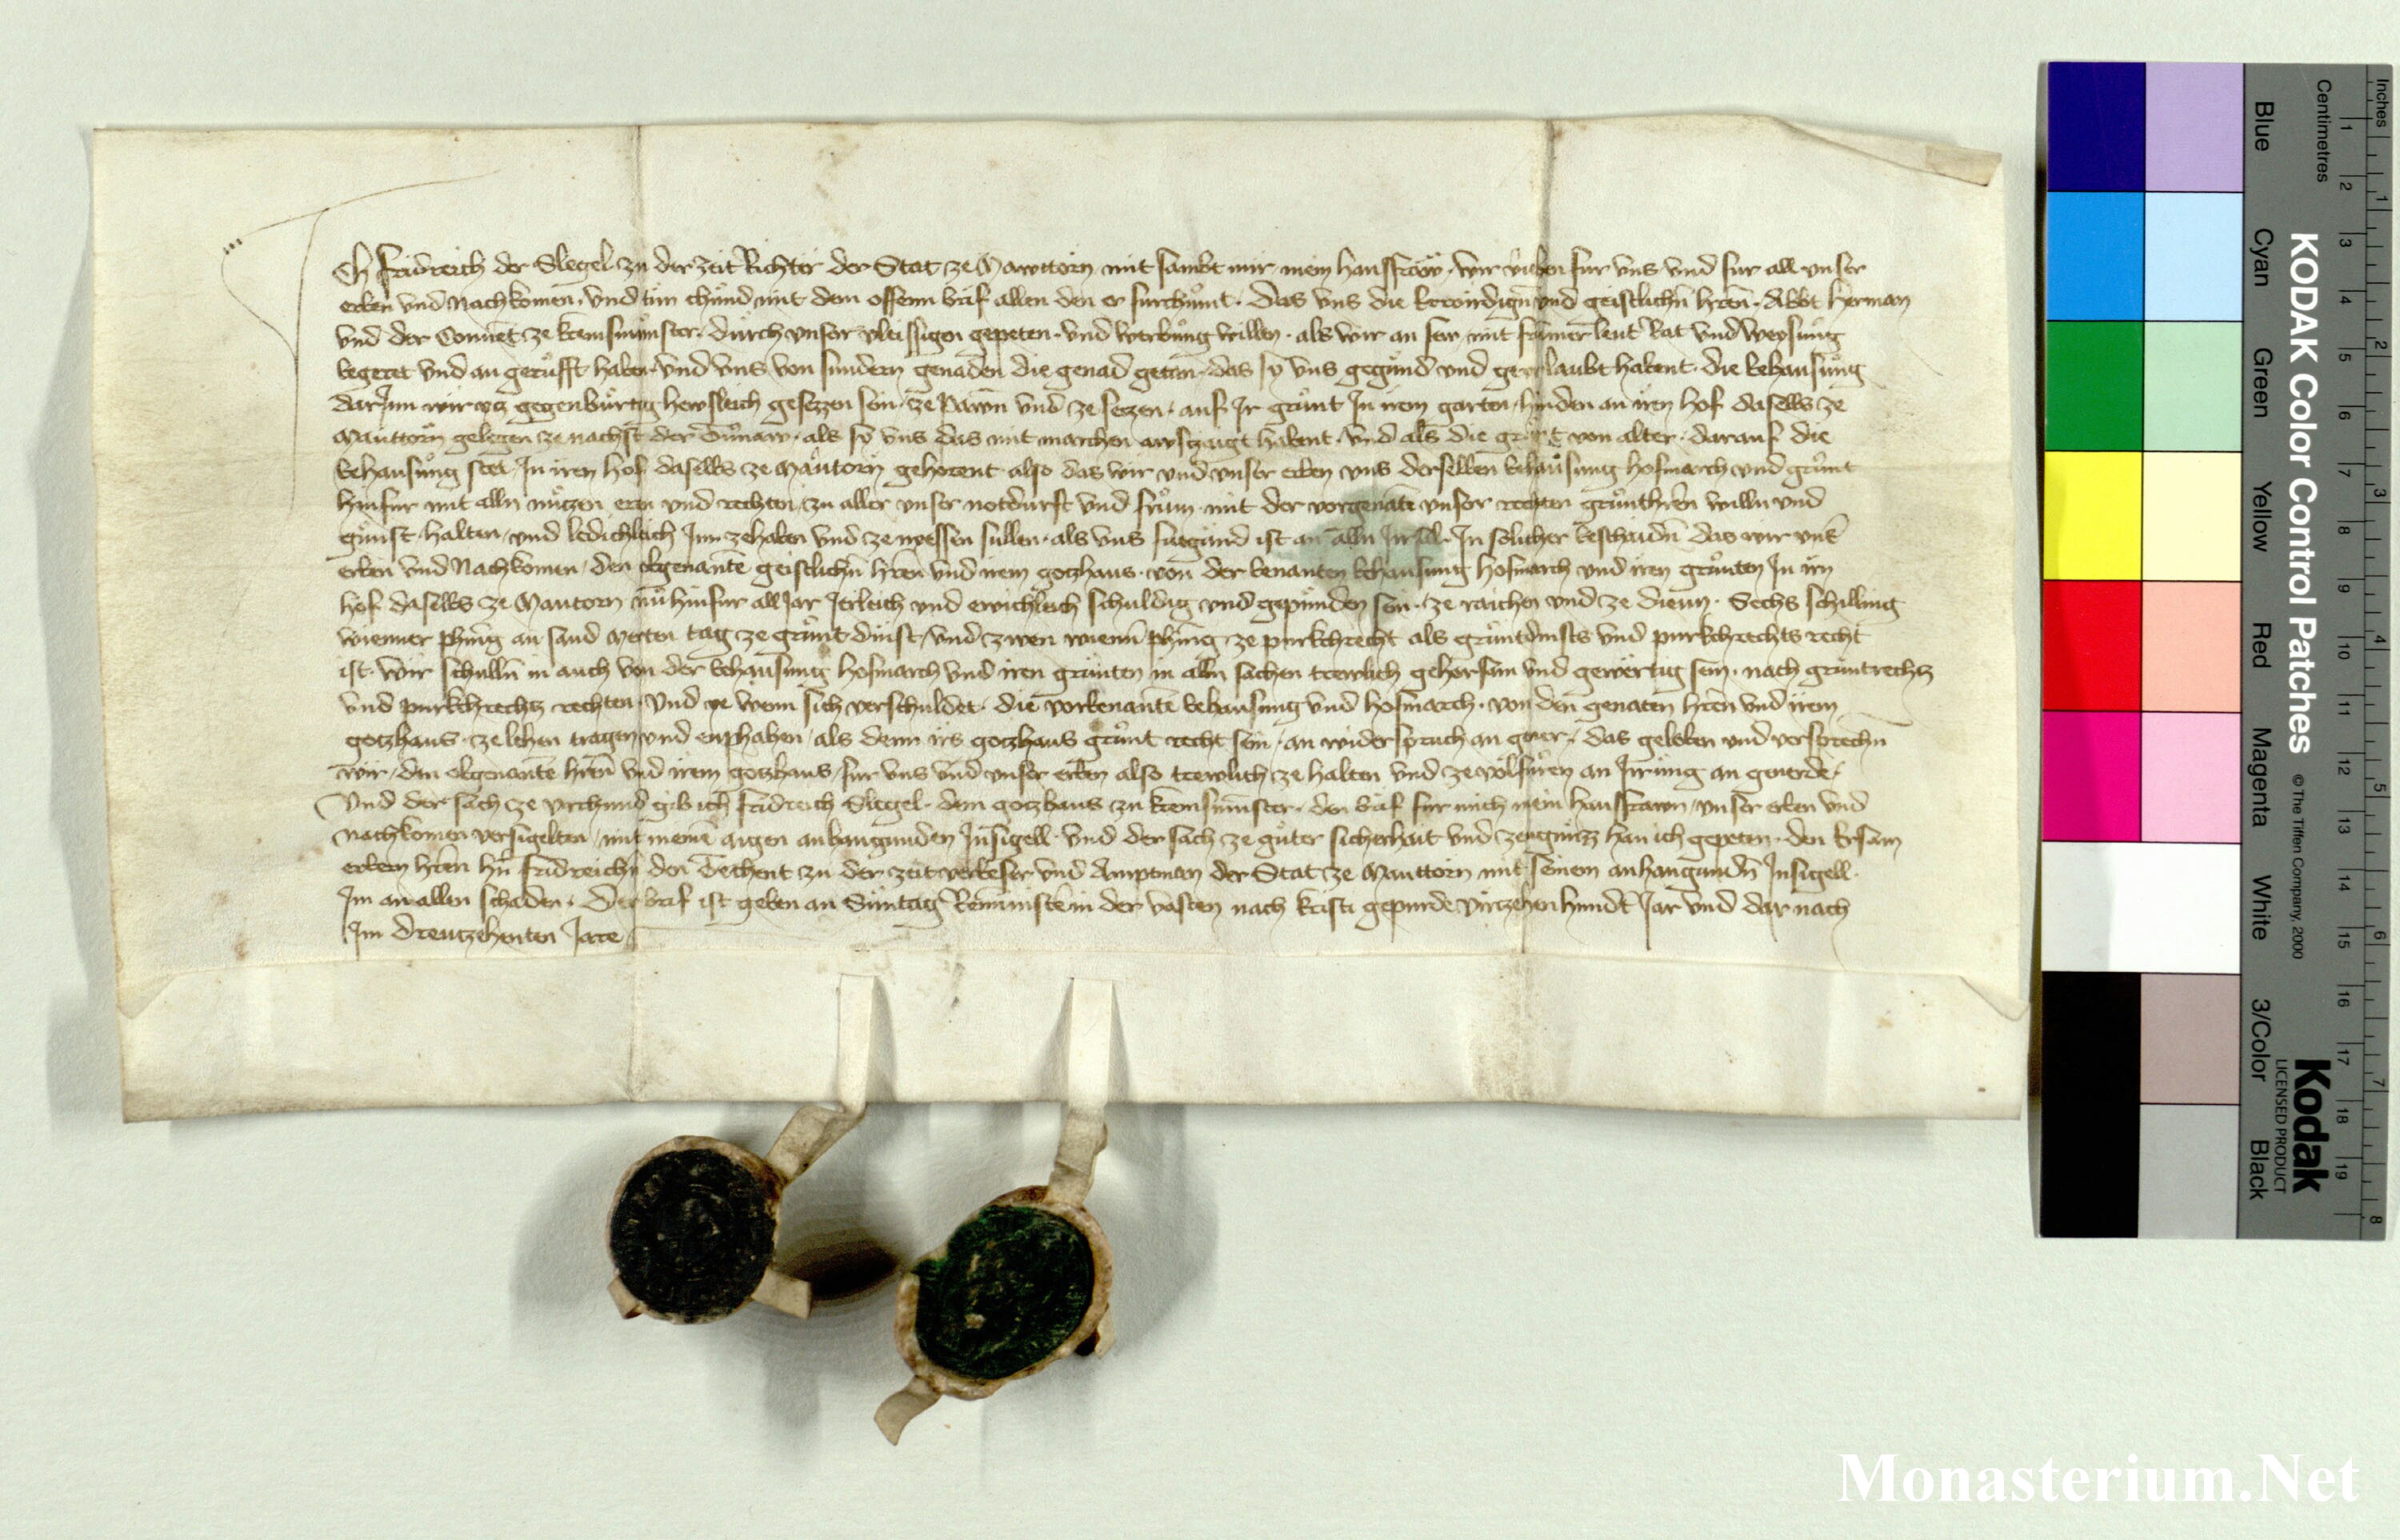 Ich fridreich der Slegel zu der zeit Richter der Stat ze Mawttorn mit sambt mir mein hausfraw wir veriehen fur vns vnd fur all vnser
erben vnd nachkomen vnd tun chund mit dem offenn brif allen den er furchumt Das vns die Erwirdign vnd geistlichn hren Abbt herman
vnd der Conuent ze kremsmunster durch vnser vleissigen gepeten vnd werbung willen als wir an sew mit frumer leut Rat vnd weysung
begeret vnd an gerufft haben vnd vns von sundern genaden die genad getan das sy vns gegund vnd gelaubt habent die behausung
darInn wir gegenburtig hewsleich gesezzen sein ze pawn vnd ze seczen auf Ir grunt In irem garten hinden an iren hof daselbs ze
Mauttorn gelegen ze nachst der Tunaw als sy vns das mit marchen awsczaigt habent vnd als die von alter darauf die
behausung stet In iren hof daselbs ze Mautorn gehorent also das wir vnd vnser erben vns derselben behausung hofmarch vnd grunt
hinfur mit alln nuczen ern vnd rechten zu aller vnser notdurft vnd frum mit der vorgenate vnser rechten grunthren willn vnd
gunst halten vnd ledichleich Inn zehaben vnd ze niessen sullen als vns furgund ist an alln In solicher beschaidn das wir vns
erben vnd Nachkomen den obgenante geistlichn hren vnd irem gotzhaus von der benanten behausung hofmarch vnd iren grunten In irn
hof daselbs ze Mautorn nu hinfur all Jar Jerleich vnd ewichleich schuldig vnd gepunden sein ze raichen vnd ze dienn Sechs schilling
wienner phing an sand Merten tag ze grunt dinst vnd zwen wienn phing ze purkchrecht als gruntdinsts vnd purkchrechts recht
ist wir schulln in auch von der behausung hofmarch vnd iren grunten in alln sachen trewlich gehorsam vnd gewertig sein nach gruntrechtz
vnd purkchrechtz rechten vnd ye wenn sich verschuldet die vorbenante behausung vnd hofmarch von den genaten hren vnd irem
gotzhaus ze lehen tragen vnd enphahen als denn irs gotzhaus grunt recht sein an widerspruch an geuer das geloben vnd versprechn
wir den obgenante hren vnd irem gotzhaus fur vns vnd vnser erben also trewlich ze halten vnd ze volfuren an Irrung an geuerde
Vnd der sach ze vrchund gib ich fridreich Slegel dem gotzhaus zu kremsmunster den brif fur mich mein hausfrawn vnser erben vnd
nachkomen versigelten mit meine aigen anhangunden Insigell vnd der sach ze guter sicherhait vnd zeugnuzz han ich gepeten den Ersam
erbern hren hn fridreichn den Techent zu der zeit verbeser vnd Amptman der Stat ze Mauttorn mit seinem anhangundn Insigell
Im an allen schaden Der brif ist geben an Suntag Reministe in der vasten nach kristi gepurde virczehen hundt Jar vnd dar nach
Im dreuczehenten Jare
KODAK Color Control Patches © The Tiffen Company, 2000
Kodak
LICENSED PRODUCT
Blue Cyan Green Yellow Red Magenta White 3/Color Black
Inches 1 2 3 4 5 6 7 8
Centimetres 1 2 3 4 5 6 7 8 9 10 11 12 13 14 15 16 17 18 19
Monasterium.Net